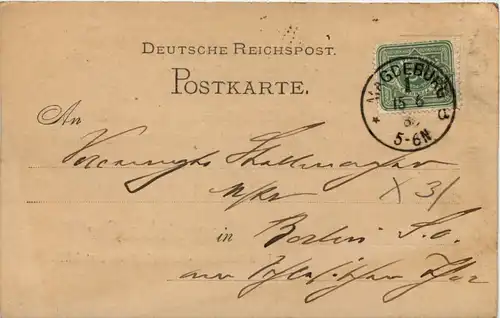 DEUTSCHE REICHSPOST.
POSTKARTE.
MAGDEBURG
15 6
5-6N.
An
Vereinigte
in Berlin S.O.
am Schlesischen Thor